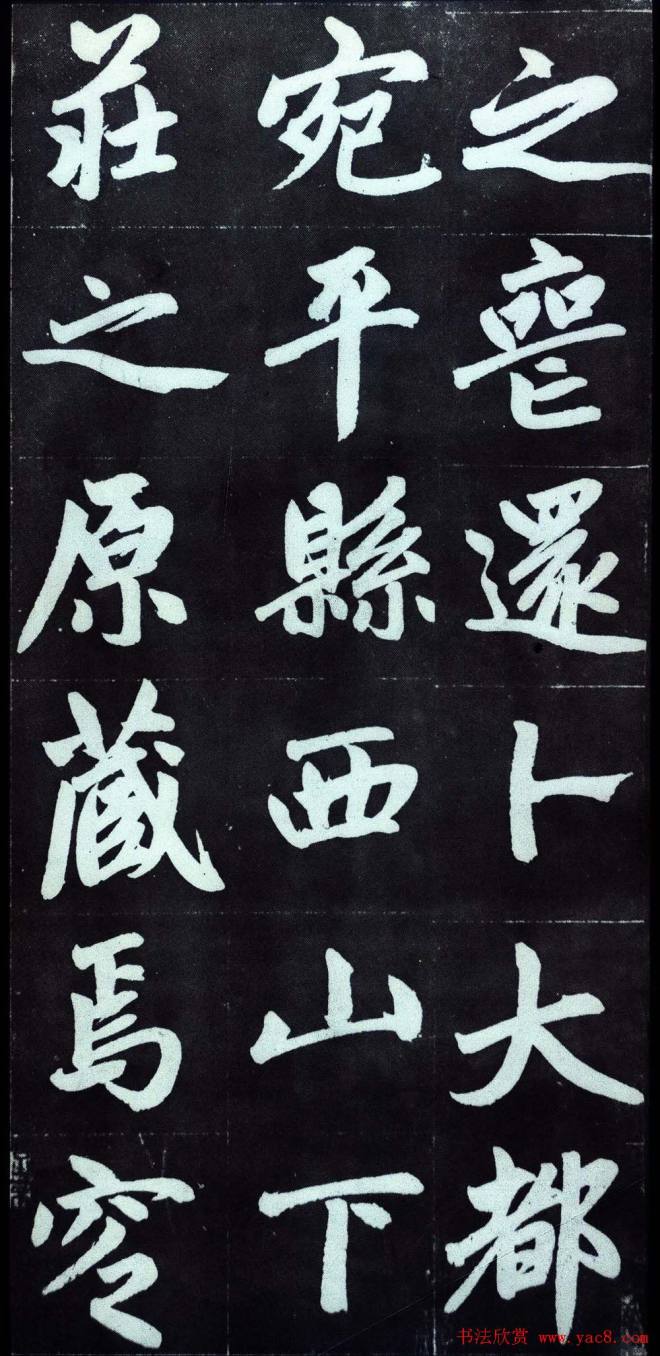 之喪還卜大都
宛平縣西山下
莊之原藏焉窆
书法欣赏 www.yac8.com